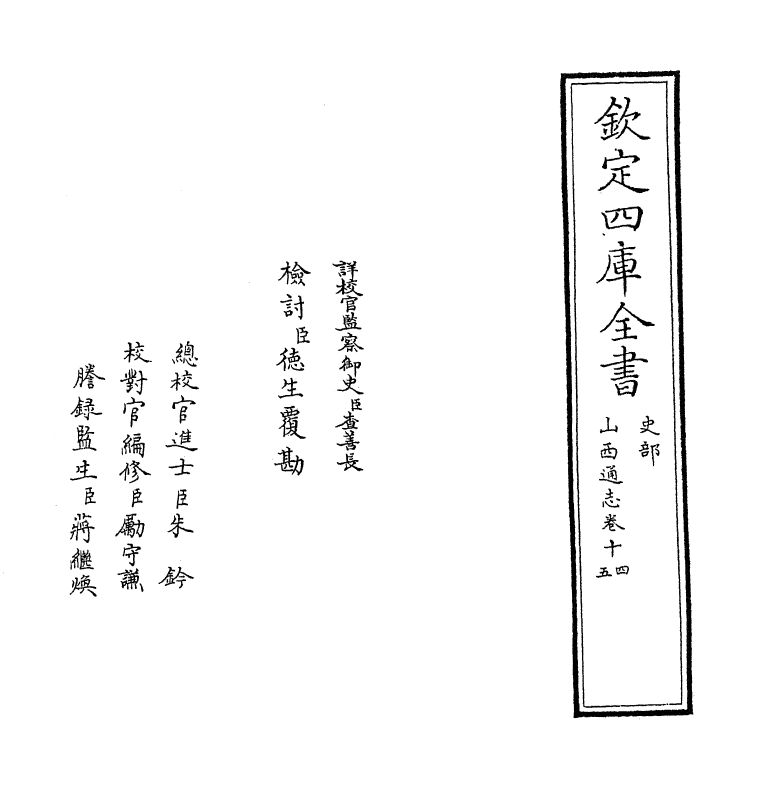 欽定四庫全書
史部
山西通志卷十四五
詳校官監察御史臣查善長
檢討臣德生覆勘
總校官進士臣朱鈐
校對官編修臣勵守謙
謄録監生臣蔣繼煥